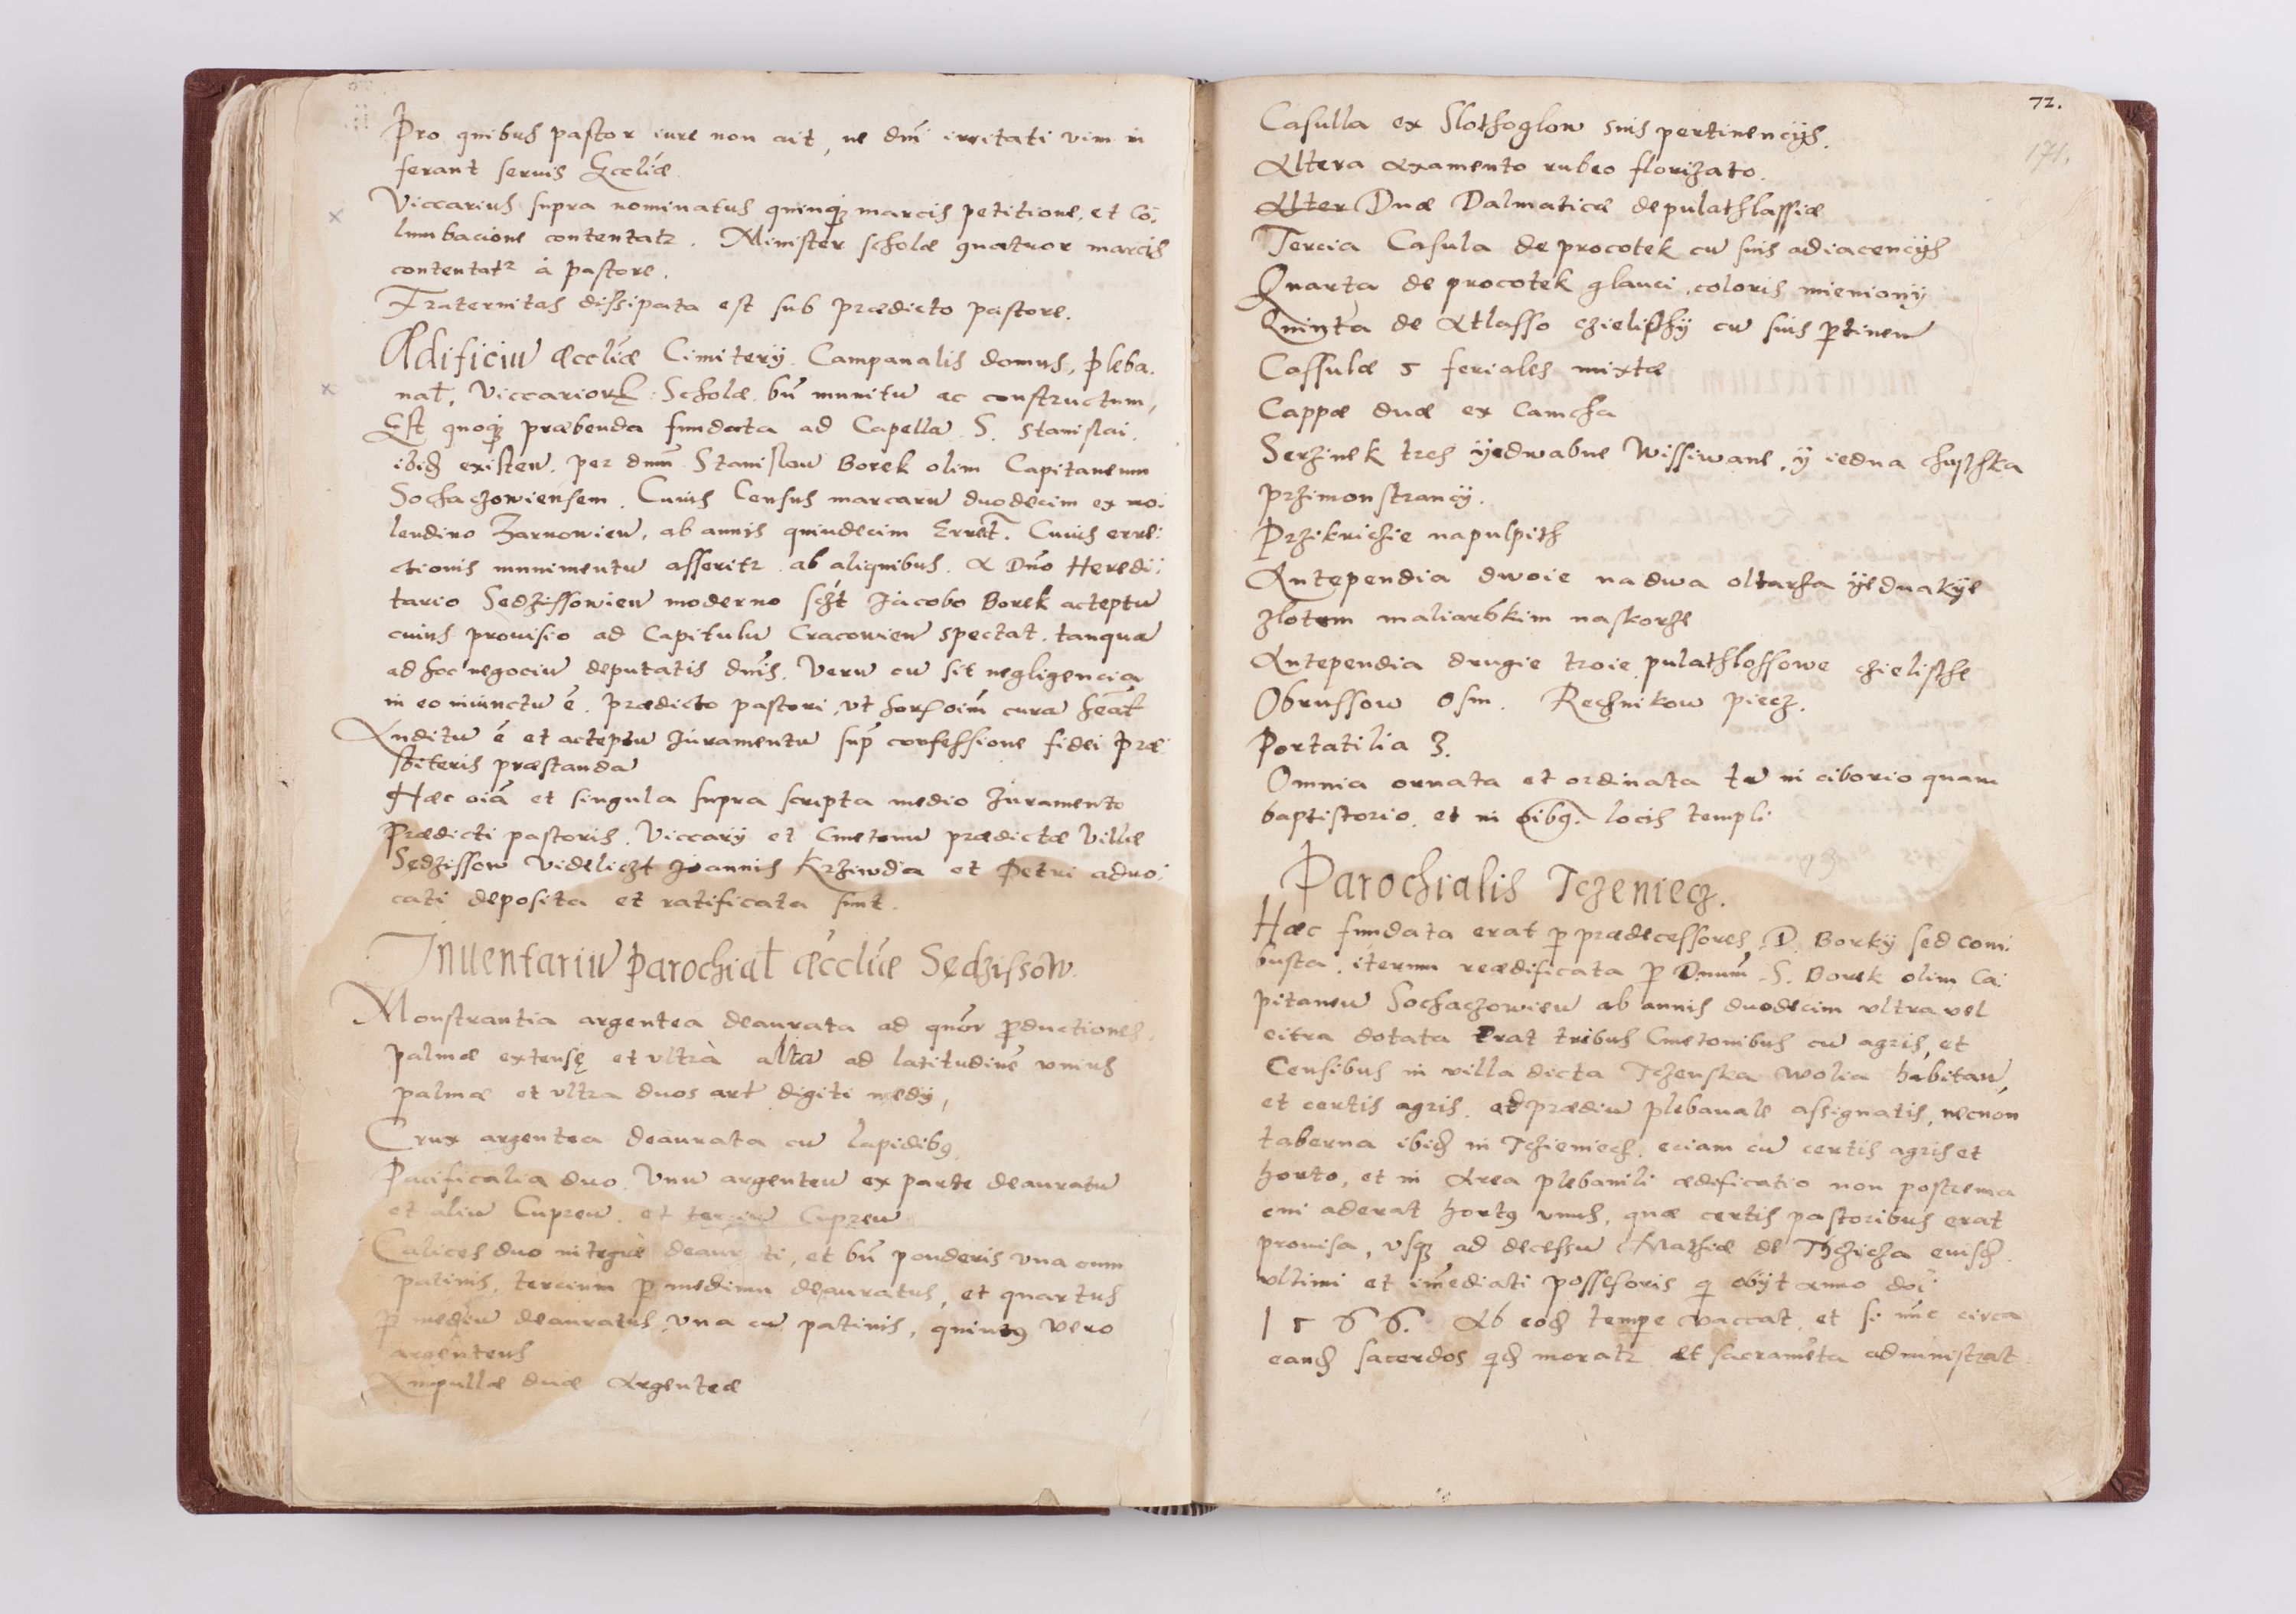 Pro quibus pastor iure non ait, ne dnī irritati vim in
ferant seruis Eccliæ.
Viccarius supra nominatus quinqȝ marcis petitione, et Co,
lumbacione contentatr. Minister scholæ quatuor marcis
contentatr à pastore.
Fraternitas dissipata est sub prædicto pastore.
Ædificiū æccliæ Cimiterÿ Campanalis domus, pleba.
nat, Viccarior Scholæ bn̄ munitū ac constructum,
Est quoqȝ præbenda fundata ad Capellā S. Stanislai,
ibid existen̄. per dnm̄ Stanislaū Borek olim Capitaneum
Sochaczowiensem. Cuius Census marcarū duodecim ex mo:
lendino Zarnowien̄, ab annis quindecim Errat. Cuius erre:
ctionis munimentū asseritr ab aliquibus. A Dn̄o Heredi:
tario Sedzissowien̄ moderno sczt Jacobo Borek acteptū
cuius prouisio ad Capitulū Cracowien̄ spectat. tanquā
ad hoc negociū deputatis dnis. Verū cū sit negligencia
in eo iniunctū ē. prædicto pastori, vt hor oim̄ curā heat
Auditū ē et acteptū Juramentū sup confessione fidei præ
sbiteris præstandā
Hæc oiā et singula supra scripta medio Juramento
Prædicti pastoris. Viccarÿ et Cmetonū prædictæ Villæ
Sędzissow Videliczt Joannis Krziwda et Petri aduo:
cati deposita et ratificata sunt.
Inuentariū parochial æccliæ Sędzissow.
Monstrantia argentea deaurata ad quor productiones
palmæ extensę et vltrà alta ad latitudinē vnius
palmæ et vltra duos art digiti medÿ,
Crux argentea deaurata cū lapidibꝯ
Pacificalia duo. Vnū argenteū ex parte deauratū
et aliū Cupreū. et terciū Cupreū
Calices duo integre deaurati, et bn̄ ponderis vna cum
patinis, tercium p medium deauratus, et quartus
p mediū deauratus, vna cū patinis, quintꝯ vero
argenteus
Ampullæ duæ Argenteæ
72.
171.
Casulla ex Slothoglow suis pertinencÿs.
Altera axamento rubeo florizato.
Alter Duæ Dalmaticæ de pulathlassiæ
Tercia Casula de procotek cū suis adiacencÿs
Quarta de procotek glauci coloris mienionÿ
Quinta de Atlasso czielisthÿ cū suis ptinen̄
Cassulæ 5 feriales mixtæ
Cappæ duæ ex Camcha
Serzinek trch ÿedwabne Wissiwane, ÿ iedna chusthka
przimonstrancÿ.
Przikrichie napulpith
Antependia dwoie na dwa oltarza ÿednakÿe
zlotem maliarskim naskorze
Antependia drugie troie pulathlossowe czielisthe
Obrussow osm. Rechnikow piecz.
Portatilia 3.
Omnia ornata et ordinata tā in ciborio quam
baptistorio, et in oibꝯ. locis templi
Parochialis Tczeniecz.
Hæc fundata erat p prædecessores D. Borkÿ sed com:
busta, iterum reædificata p Dnum̄ S. Borek olim Ca:
pitaneū Sochaczowien̄ ab annis duodecim vltra vel
citra dotata Erat tribus Cmetonibus cū agris, et
Censibus in villa dicta Tczenska wolia habitan̄,
et certis agris ad prædiū plebanale assignatis, necnon
taberna ibid in Tczieniech. eciam cū certis agris et
horto, et in Area plebanili ædificatio non postrema
cui aderat hortꝯ vnus, quæ certis pastoribus erat
prouisa, vsqȝ ad decessū Mathiæ de Thczicza eiusd
vltimi et im̄ediati possesoris q obÿt anno doi
1566. Ab eod tempe vaccat, et si nūc circa
eand sacerdos qd moratr et sacramēta administrat